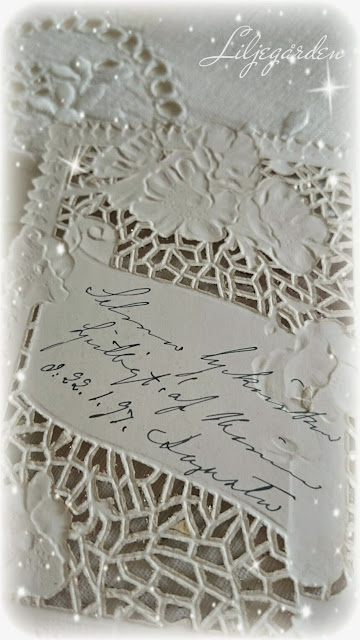 Liljegården
Selma lyckönskas
hjertligt af
d. 22. 1. 97. Augusta